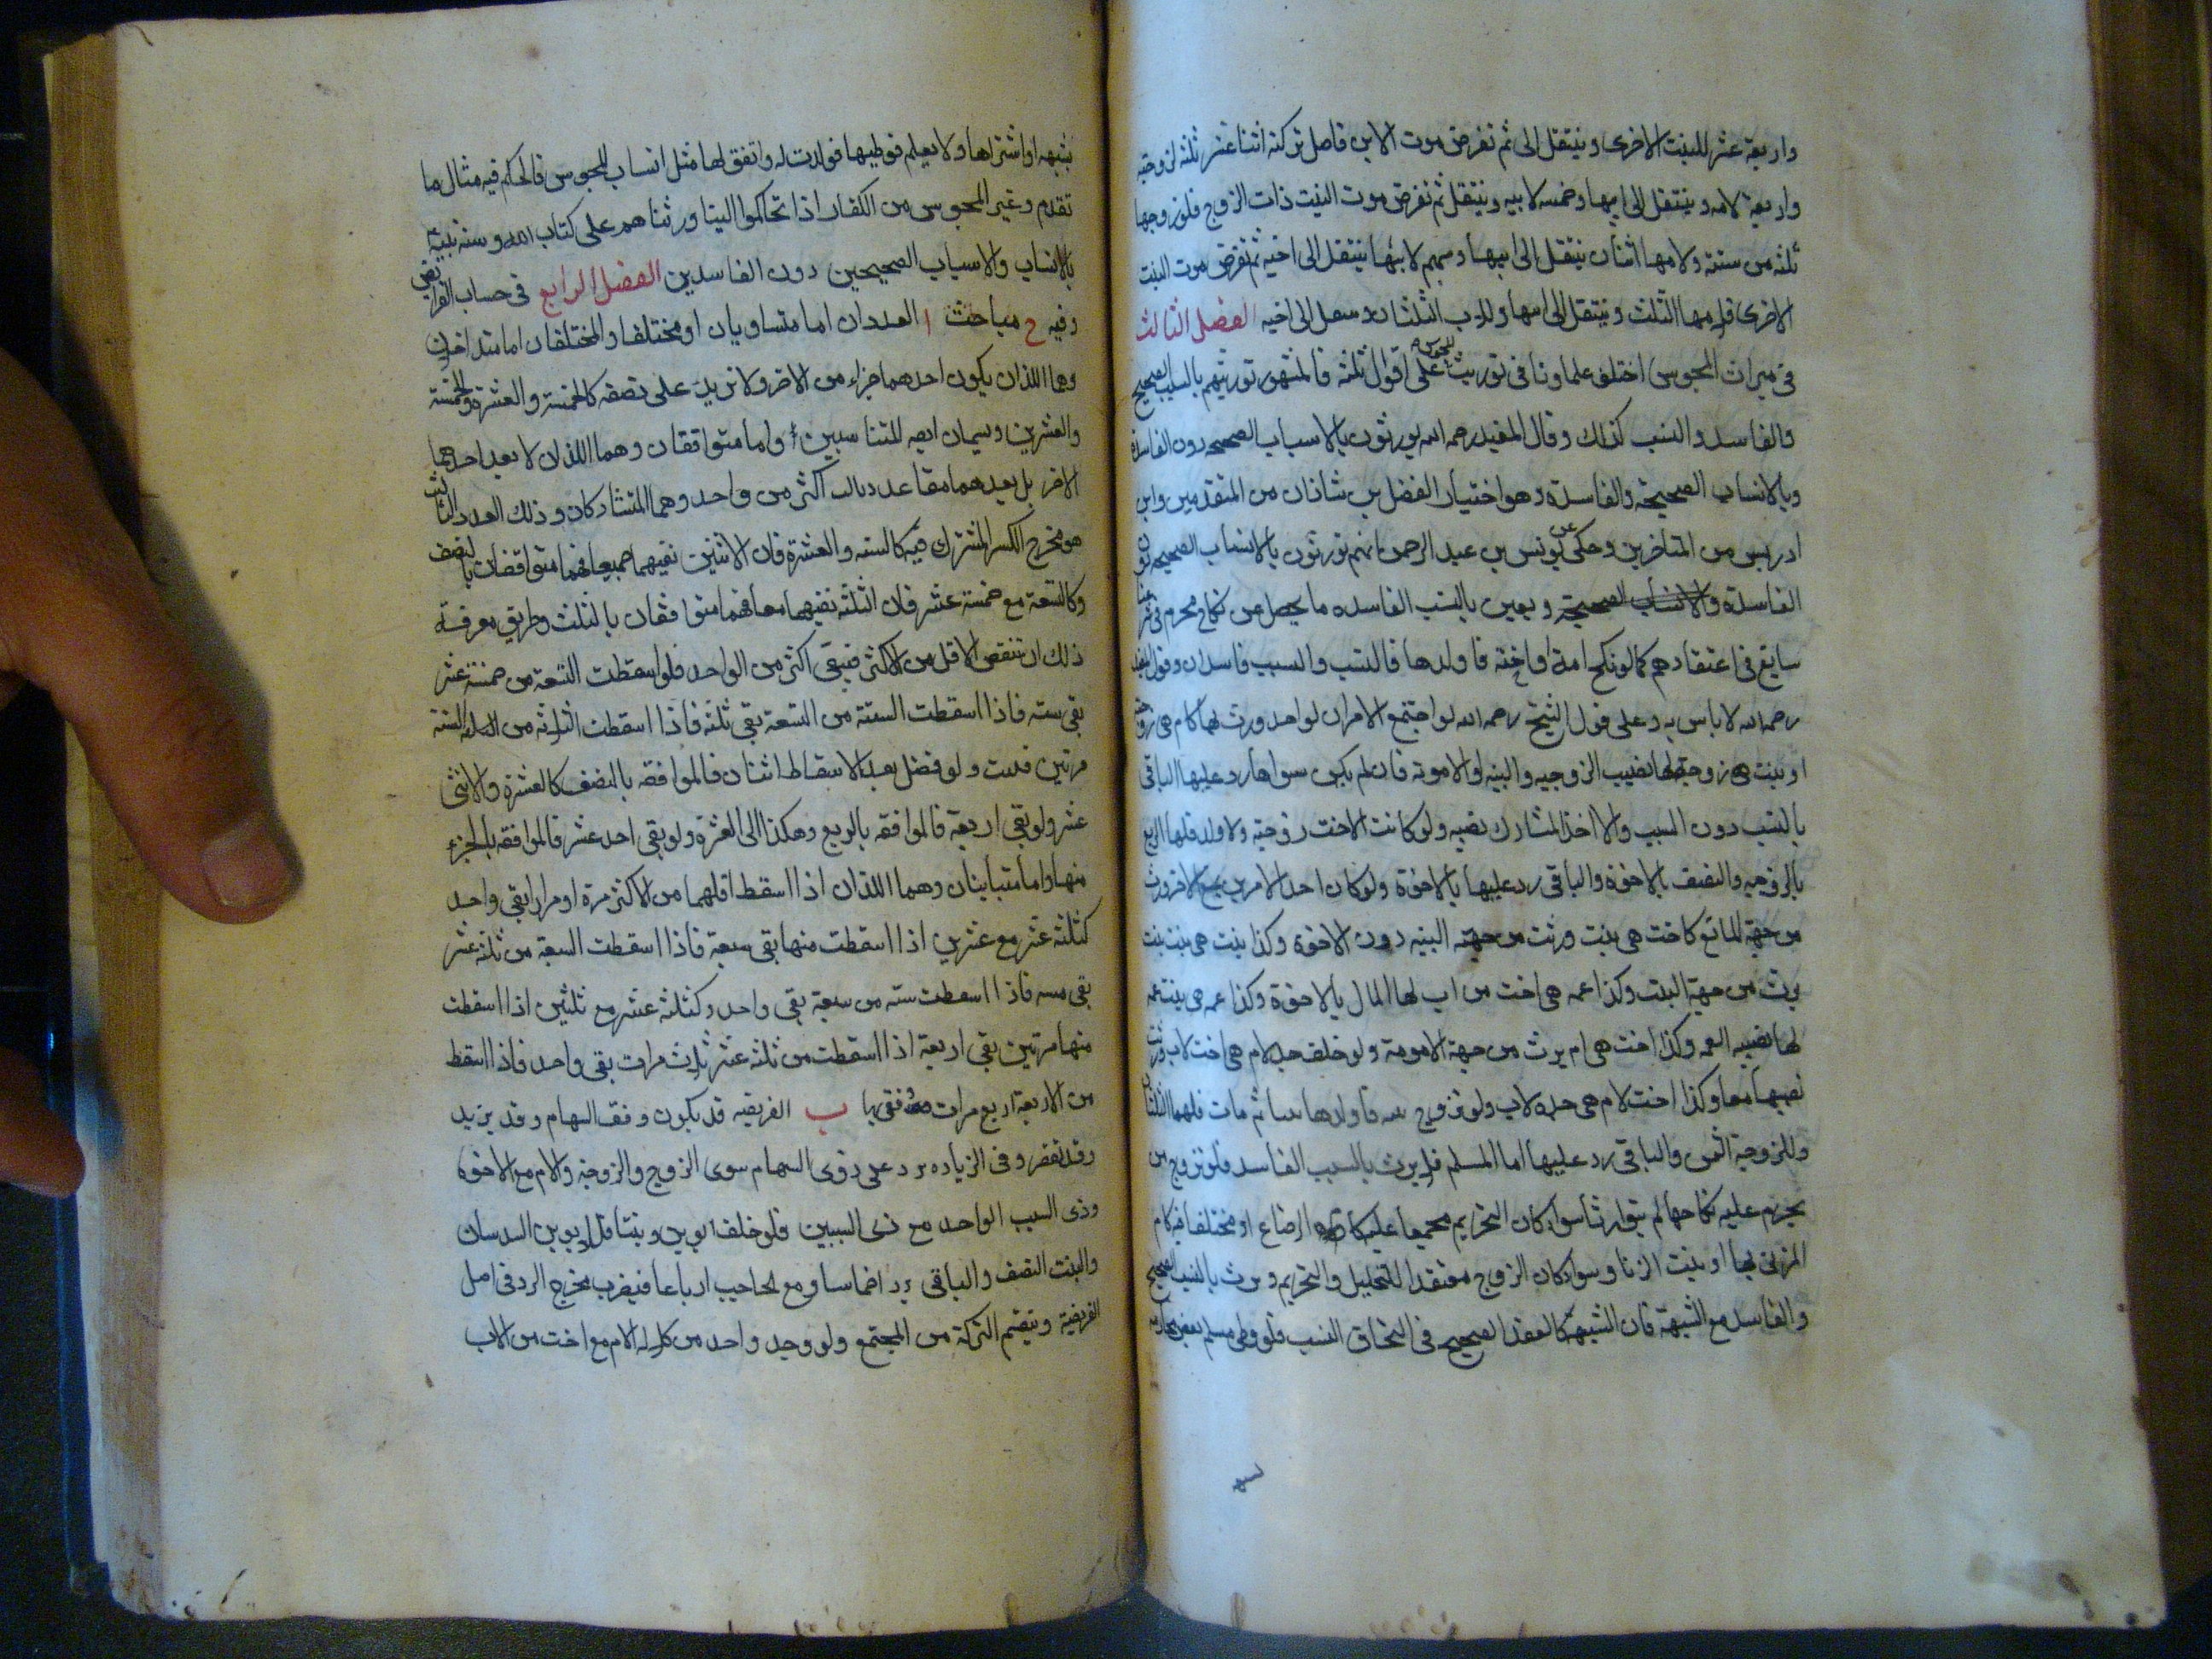 واربعة عشر للبنت الاخرى وينتقل الى ثم تفرض موت الابن فاصل تركته اثنا عشر ثلثه لزوجته
واربعة لامه وينتقل الى ابيها وخمسه لابيه وينتقل ثم تفرض موت البنت ذات الزوج فلزوجها
ثلثه من ستة ولامها اثنان ينتقل الى ابيها وسهم لابيها ينتقل الى اخيه ثم تفرض موت البنت
الاخرى فلامها الثلث وينتقل الى ابيها وللاب الثلثان وينتقل الى اخيه الفصل الثالث
فى ميراث المجوسى اختلف علماونا فى توريث المجوس على اقوال ثلثه فالمشهور توريثهم بالسبب الصحيح
والفاسد والنسب كذلك وقال المفيد رحمه الله يورثون بالاسباب الصحيحه دون الفاسدة
وبالانساب الصحيحة والفاسدة وهو اختيار الفضل بن شاذان من المتقدمين وابن
ادريس من المتاخرين وحكى عن يونس بن عبد الرحمن انهم يورثون بالانساب الصحيحه دون
الفاسدة والانساب الصحيحة ويعنى بالنسب الفاسده ما يحصل عن نكاح محرم فى شرعنا
سايغ فى اعتقادهم كما لو نكح امه او اخته فاولدها فالنسب والسبب فاسدان وقول المفيد
رحمه الله لا باس به وعلى قول الشيخ رحمه الله لو اجتمع الامران لواحد ورث بهما كام هى زوجة
او بنت هى زوجة لها نصيب الزوجيه والبنتيه او الامومة فان لم يكن سواها رد عليها الباقى
بالنسب دون السبب والا اخذ المشارك نصيبه ولو كانت الاخت زوجته ولا ولد فلها الربع
بالزوجيه والنصف بالاخوة والباقى رد عليها بالاخوة ولو كان احد الامرين يمنع الاخر ورث
من جهة المانع كاخت هى بنت ورثت من جهة البنتيه دون الاخوة وكذا بنت هى بنت بنت
يرث من جهة البنت وكذا عمه هى اخت من اب لها المال بالاخوة وكذا عمه هى بنت عمه
لها نصيب العمه وكذا اخت هى ام يرث من جهة الامومة ولو خلف جدة لام هى اخت لاب ورثت
نصيبهما معا وكذا اخت لام هى جدة لاب ولو تزوج بنته فاولدها بنتا ثم مات فلهما الثلثان
وللزوجة الثمن والباقى رد عليهما اما المسلم فلا يرث بالسبب الفاسد فلو تزوج من
يحرم عليه نكاحها لم يتوارثا سواء كان التحريم مجمعا عليه كام الرضاع او مختلفا فيه كام
المزنى بها او بنت الزنا وسواء كان الزوج معتقدا للتحليل والتحريم ويرث بالنسب الصحيح
والفاسد مع الشبهة فان الشبهة كالعقد الصحيح فى التحاق النسب فلو وطى مسلم بعض محارمه
بشبهه او اشتراها ولا يعلم فوطيها فولدت له واتفق لها مثل انساب المجوس فالحكم فيه مثال ما
تقدم وغير المجوس من الكفار اذا تحاكموا الينا ورثناهم على كتاب الله وسنه نبيه
بالانساب والاسباب الصحيحين دون الفاسدين الفصل الرابع فى حساب الفرايض
وفيه ح مباحث ا العددان اما متساويان او مختلفا والمختلفان اما متداخلان
وهما اللذان يكون احدهما جزاء من الاخر ولا تزيد على نصفه كالخمسة والعشرة والخمسة
والعشرين ويسميان ايضا للمتناسبين واما متوافقان وهما اللذان لا يعد احدهما
الاخر بل يعدهما معا عدد ثالث اكثر من واحد وهما المتشاركان وذلك العدد الثالث
هو مخرج الكسر المشترك فيه كالسته والعشرة فان الاثنين تفنيهما جميعا فهما متوافقان بالنصف
وكالتسعة مع خمسة عشر فان الثلثه تفنيهما معا فهما متوافقان بالثلث وطريق معرفة
ذلك ان تنقص الاقل من الاكثر فيبقى اكثر من الواحد فلو اسقطت التسعة من خمسة عشر
بقى سته فاذا اسقطت الستة من التسعة بقى ثلثه فاذا اسقطت الثلاثه من الستة
مرتين فنيت ولو فضل بعد الاسقاط اثنان فالموافقه بالنصف كالعشرة والاثنى
عشر ولو بقى اربعة فالموافقه بالربع وهكذا الى العشرة ولو بقى احد عشر فالموافقه بالجزء
منها واما متباينان وهما اللذان اذا اسقط اقلهما من الاكثر مرة او مرارا بقى واحد
كثلثه عشر مع عشرين اذا اسقطت منها بقى سبعة فاذا اسقطت السبعة من ثلثه عشر
بقى سته فاذا اسقطت سته من سبعة بقى واحد وكثلثه عشر مع ثلثين اذا اسقطت
منها مرتين بقى اربعة اذا اسقطت من ثلثه عشر ثلاث مرات بقى واحد فاذا اسقط
من الاربعة اربع مرات فنى بها ب الفريضه قد يكون وفق السهام وقد يزيد
وقد تقصر وفى الزياده يرد على ذوى السهام سوى الزوج والزوجة والام مع الاخوة
وذى السبب الواحد مع ذى السببين فلو خلف ابوين وبنتا فللابوين السدسان
والبنت النصف والباقى يرد اخماسا ومع الحاجب ارباعا فيضرب مخرج الرد فى اصل
الفريضة وينقسم التركة من المجتمع ولو وجد واحد من كلاله الام مع اخت من الاب